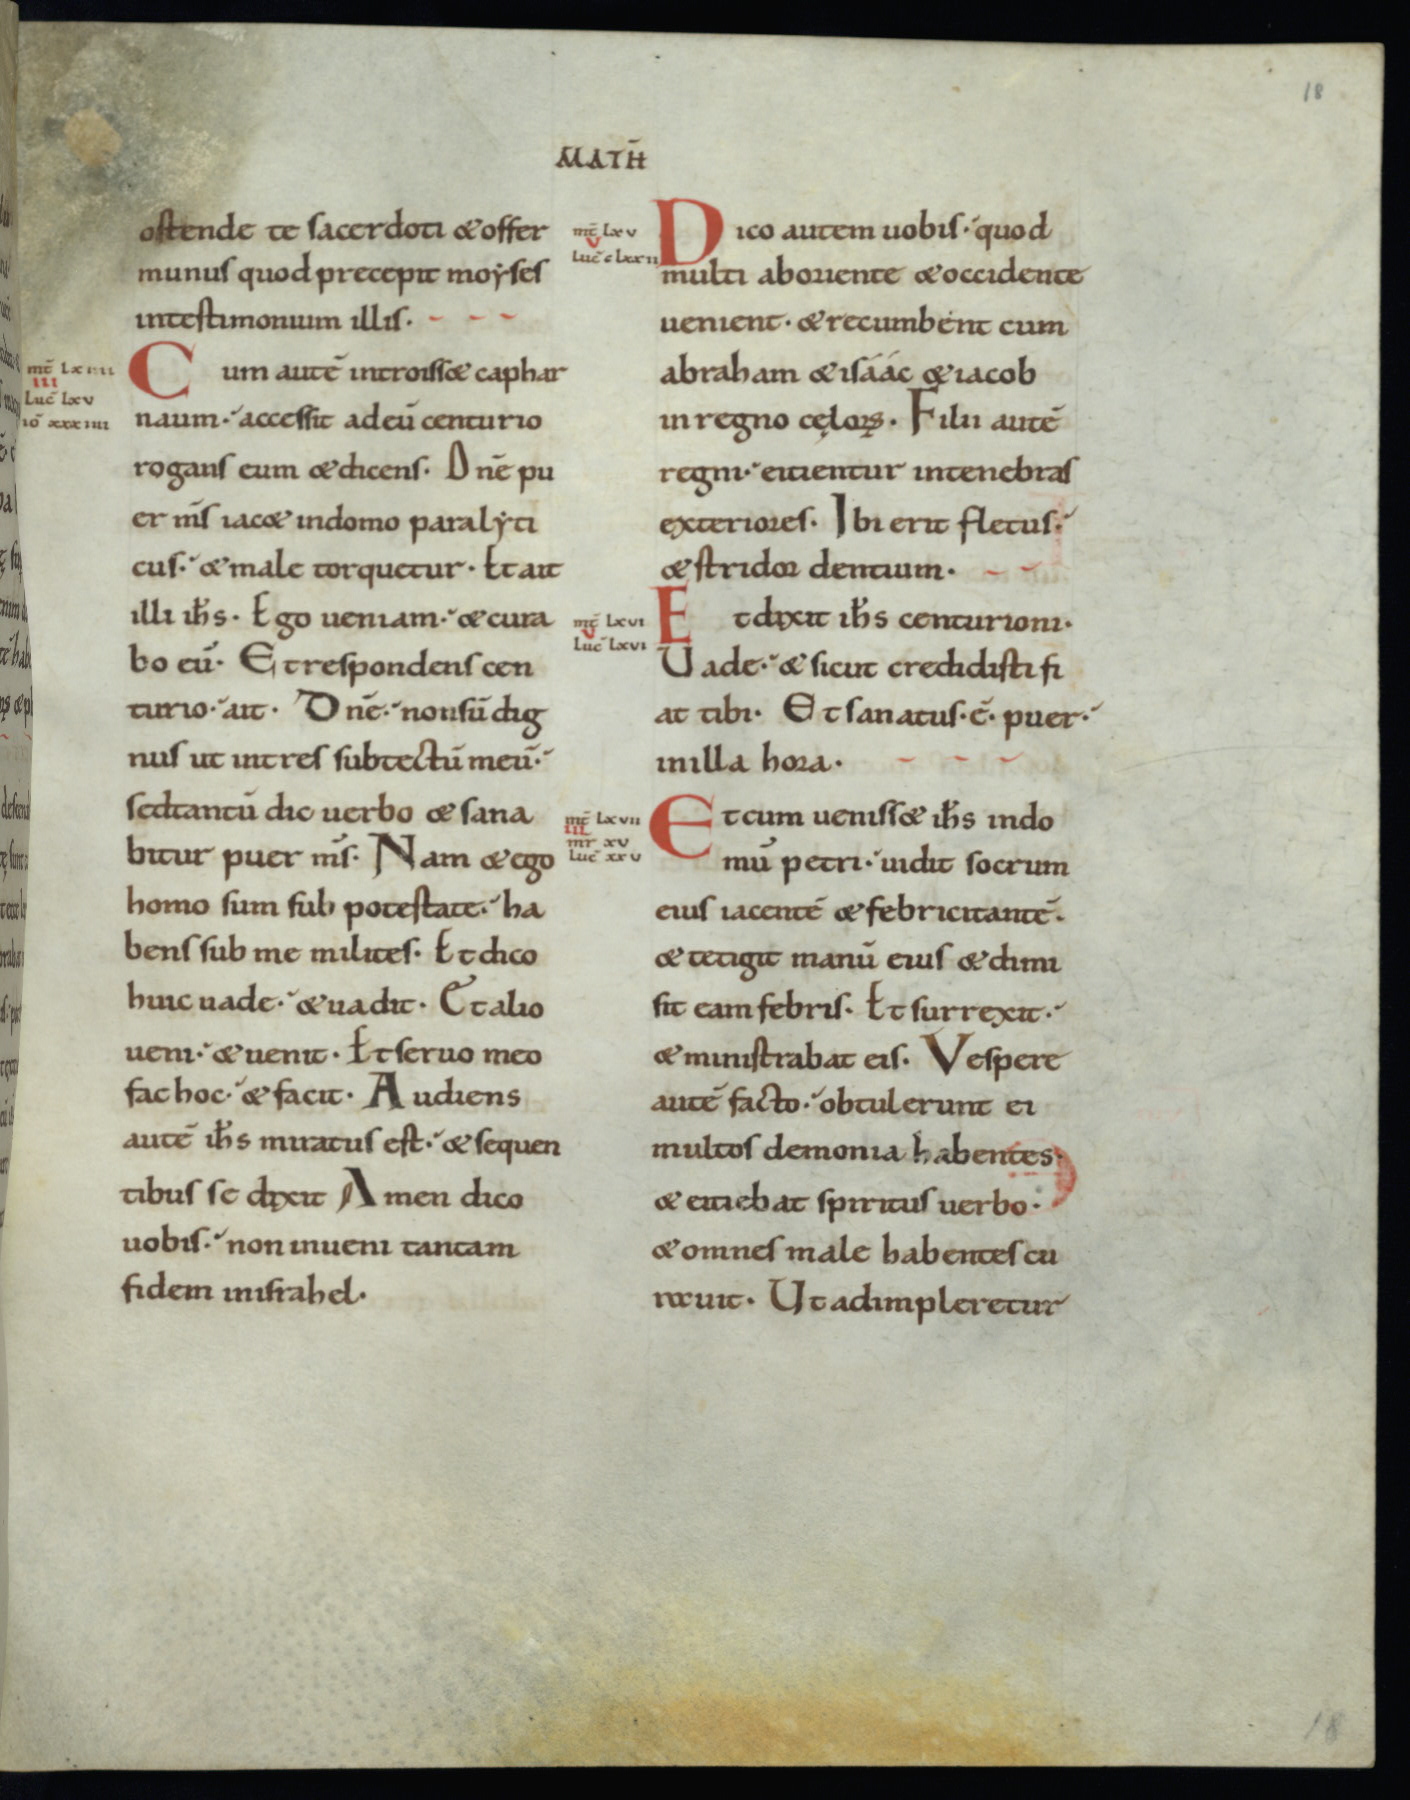 18
MATH̄
ostende te sacerdoti & offer
munus quod precepit moẏses
intestimonium illis·
mt̄ Lxiiii
III
Luc̄ Lxv
iō xxxiiii
Cum autē introiss& caphar
naum· accessit adeū centurio
rogans eum & dicens· Dnē pu
er m̄s iac& indomo paralẏti
cus· & male torquetur· Et ait
illi ih̄s· Ego ueniam· & cura
bo eū· Et respondens cen
turio· ait· Dnē· nonsū dig
nus ut intres subtectū meū·
sedtantū dic uerbo & sana
bitur puer m̄s· Nam & ego
homo sum sub potestate· ha
bens sub me milites· Et dico
huic uade· & uadit· Et alio
ueni· & uenit· Et seruo meo
fac hoc· & facit· Audiens
autē ih̄s miratus est· & sequen
tibus se dixit Amen dico
uobis· non inueni tantam
fidem inisrahel·
mt̄ Lxv
V
Luc̄ cLxxii
Dico autem uobis· quod
multi aboriente & occidente
uenient· & recumbent cum
abraham & isáác & iacob
in regno cęloꝝ· Filii autē
regni· eicientur intenebras
exteriores· Ibi erit fletus·
& stridor dentium·
mt̄ Lxvi
V
Luc̄ Lxvi
Et dixit ih̄s centurioni·
Uade· & sicut credidisti fi
at tibi· Et sanatus·ē· puer·
inilla hora·
mt̄ Lxvii
III
mr xv
Luc̄ xxv
Et cum ueniss& ih̄s indo
mū petri· uidit socrum
eius iacentē & febricitantē·
& tetigit manū eius & dimi
sit eam febris· Et surrexit·
& ministrabat eis· Vespere
autē facto· obtulerunt ei
multos demonia habentes·
& eiciebat spiritus uerbo·
& omnes male habentes cu
rauit· Ut adimpleretur
18